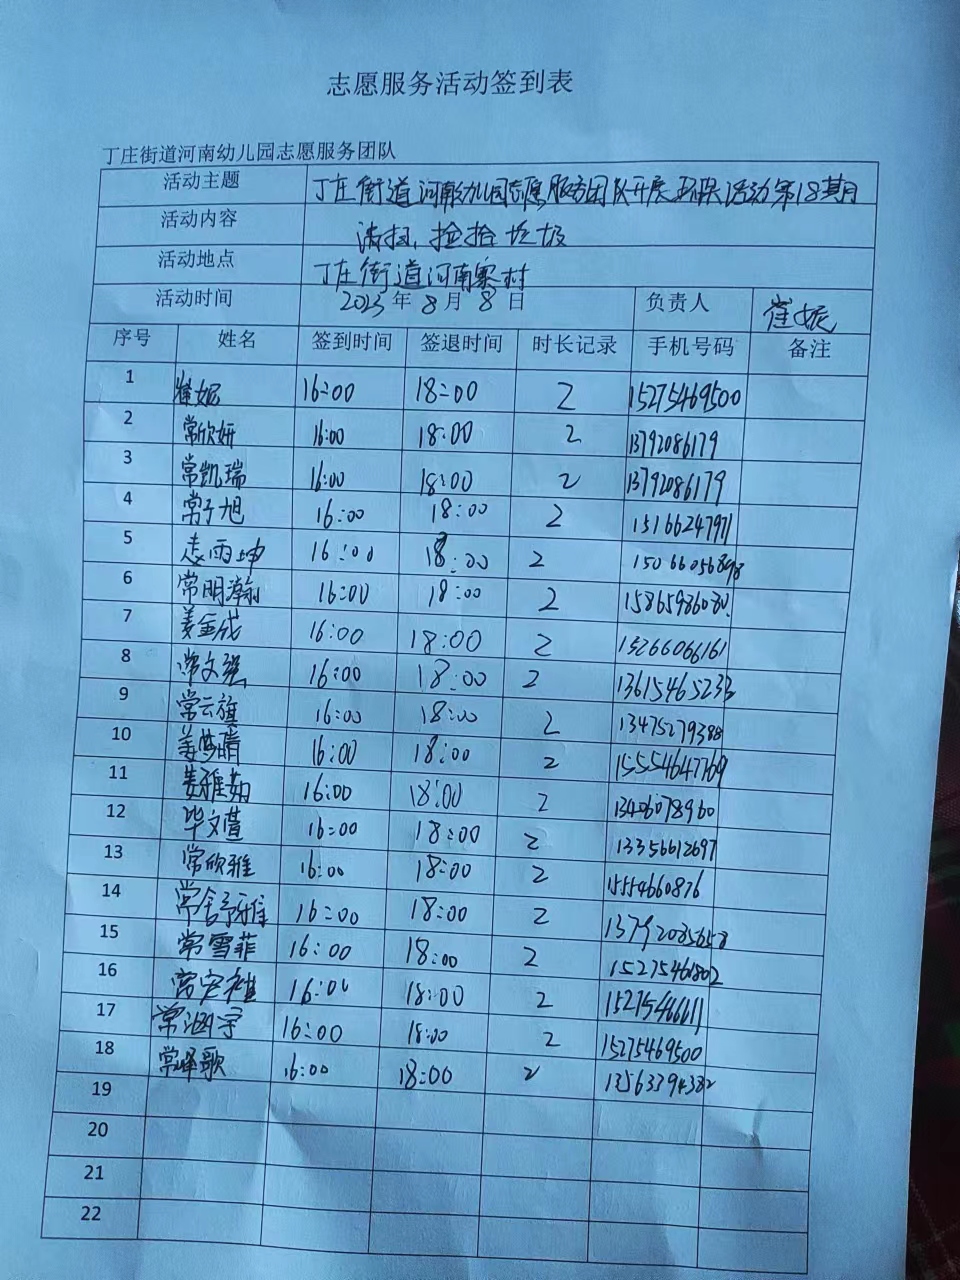 志愿服务活动签到表
丁庄街道河南幼儿园志愿服务团队
活动主题 丁庄街道河南幼儿园志愿服务团队开展环保活动第18期
活动内容 清扫、捡拾垃圾
活动地点 丁庄街道河南寨村
活动时间 2023年8月8日 负责人 崔妮
序号 姓名 签到时间 签退时间 时长记录 手机号码 备注
1 崔妮 16:00 18:00 2 15275469500
2 常欣妍 16:00 18:00 2 13792086179
3 常凯瑞 16:00 18:00 2 13792086179
4 常子旭 16:00 18:00 2 15166247971
5 雨坤 16:00 18:00 2 15066056898
6 常明瀚 16:00 18:00 2
7 姜金成 16:00 18:00 2 15266066161
8 常文强 16:00 18:00 2 13615465233
9 常云旗 16:00 18:00 2 13475279388
10 姜梦晴 16:00 18:00 2 15554647769
11 姜雅茹 16:00 18:00 2 13406078960
12 毕文萱 16:00 18:00 2 13356612697
13 常欣雅 16:00 18:00 2 15554660876
14 常舍予雅 16:00 18:00 2 13792085658
15 常雪菲 16:00 18:00 2 15275461802
16 常宏 16:00 18:00 2 15275466611
17 常涵宇 16:00 18:00 2 15275469500
18 常峰歌 16:00 18:00 2 13563394382
19
20
21
22